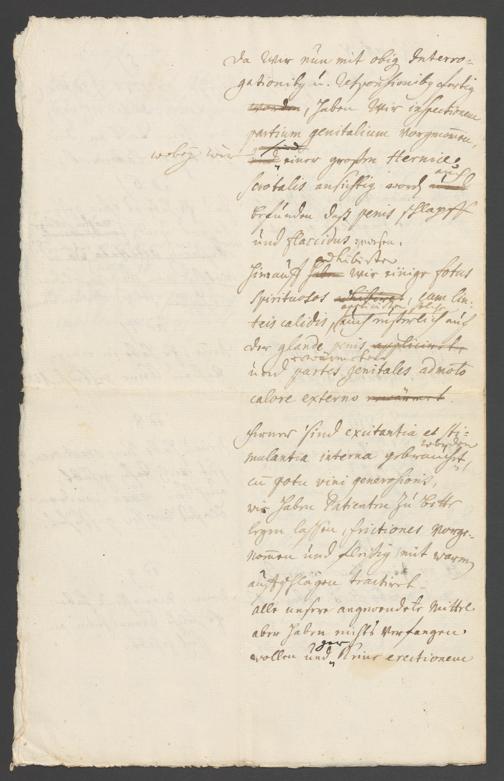 Da wir nun mit obig Interro-
gationib9 u. Responsionib9 fertig
worden, haben wir inspectionem
partium genitalium vorgnom̄en,
wobey wir sind einer großen Hernice
scrotalis ansichtig word auch
befunden daß penis schlapff
und flaccidus gewesen.
adhibirten
hierauff haben wir einige fotus
spirituosos, cum lin-
teis calidis, auch äußerlich auf
der glande penis applicirt,
erwärmeten
und partes genitales admoto
calore externo erwärmt.
ferner sind excitantia et sti-
worden
mulantia interna gebraucht,
cu potu vini generosioris,
wir haben Patienten zu bette
legen lassen, frictiones vorge-
nom̄en und fleißig mit warm
aufschlägen tractiret
alle unsere angewendete Mittel
aber haben nichts verfangen
gar
wollen und keine erectionem